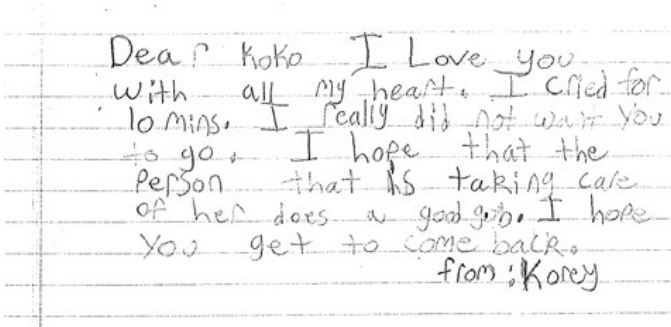 Dear Koko I Love you
with all my heart. I cried for
10 mins. I really did not want you
to go. I hope that the
person that is taking care
of her does a good gob. I hope
you get to come back.
from: Korey